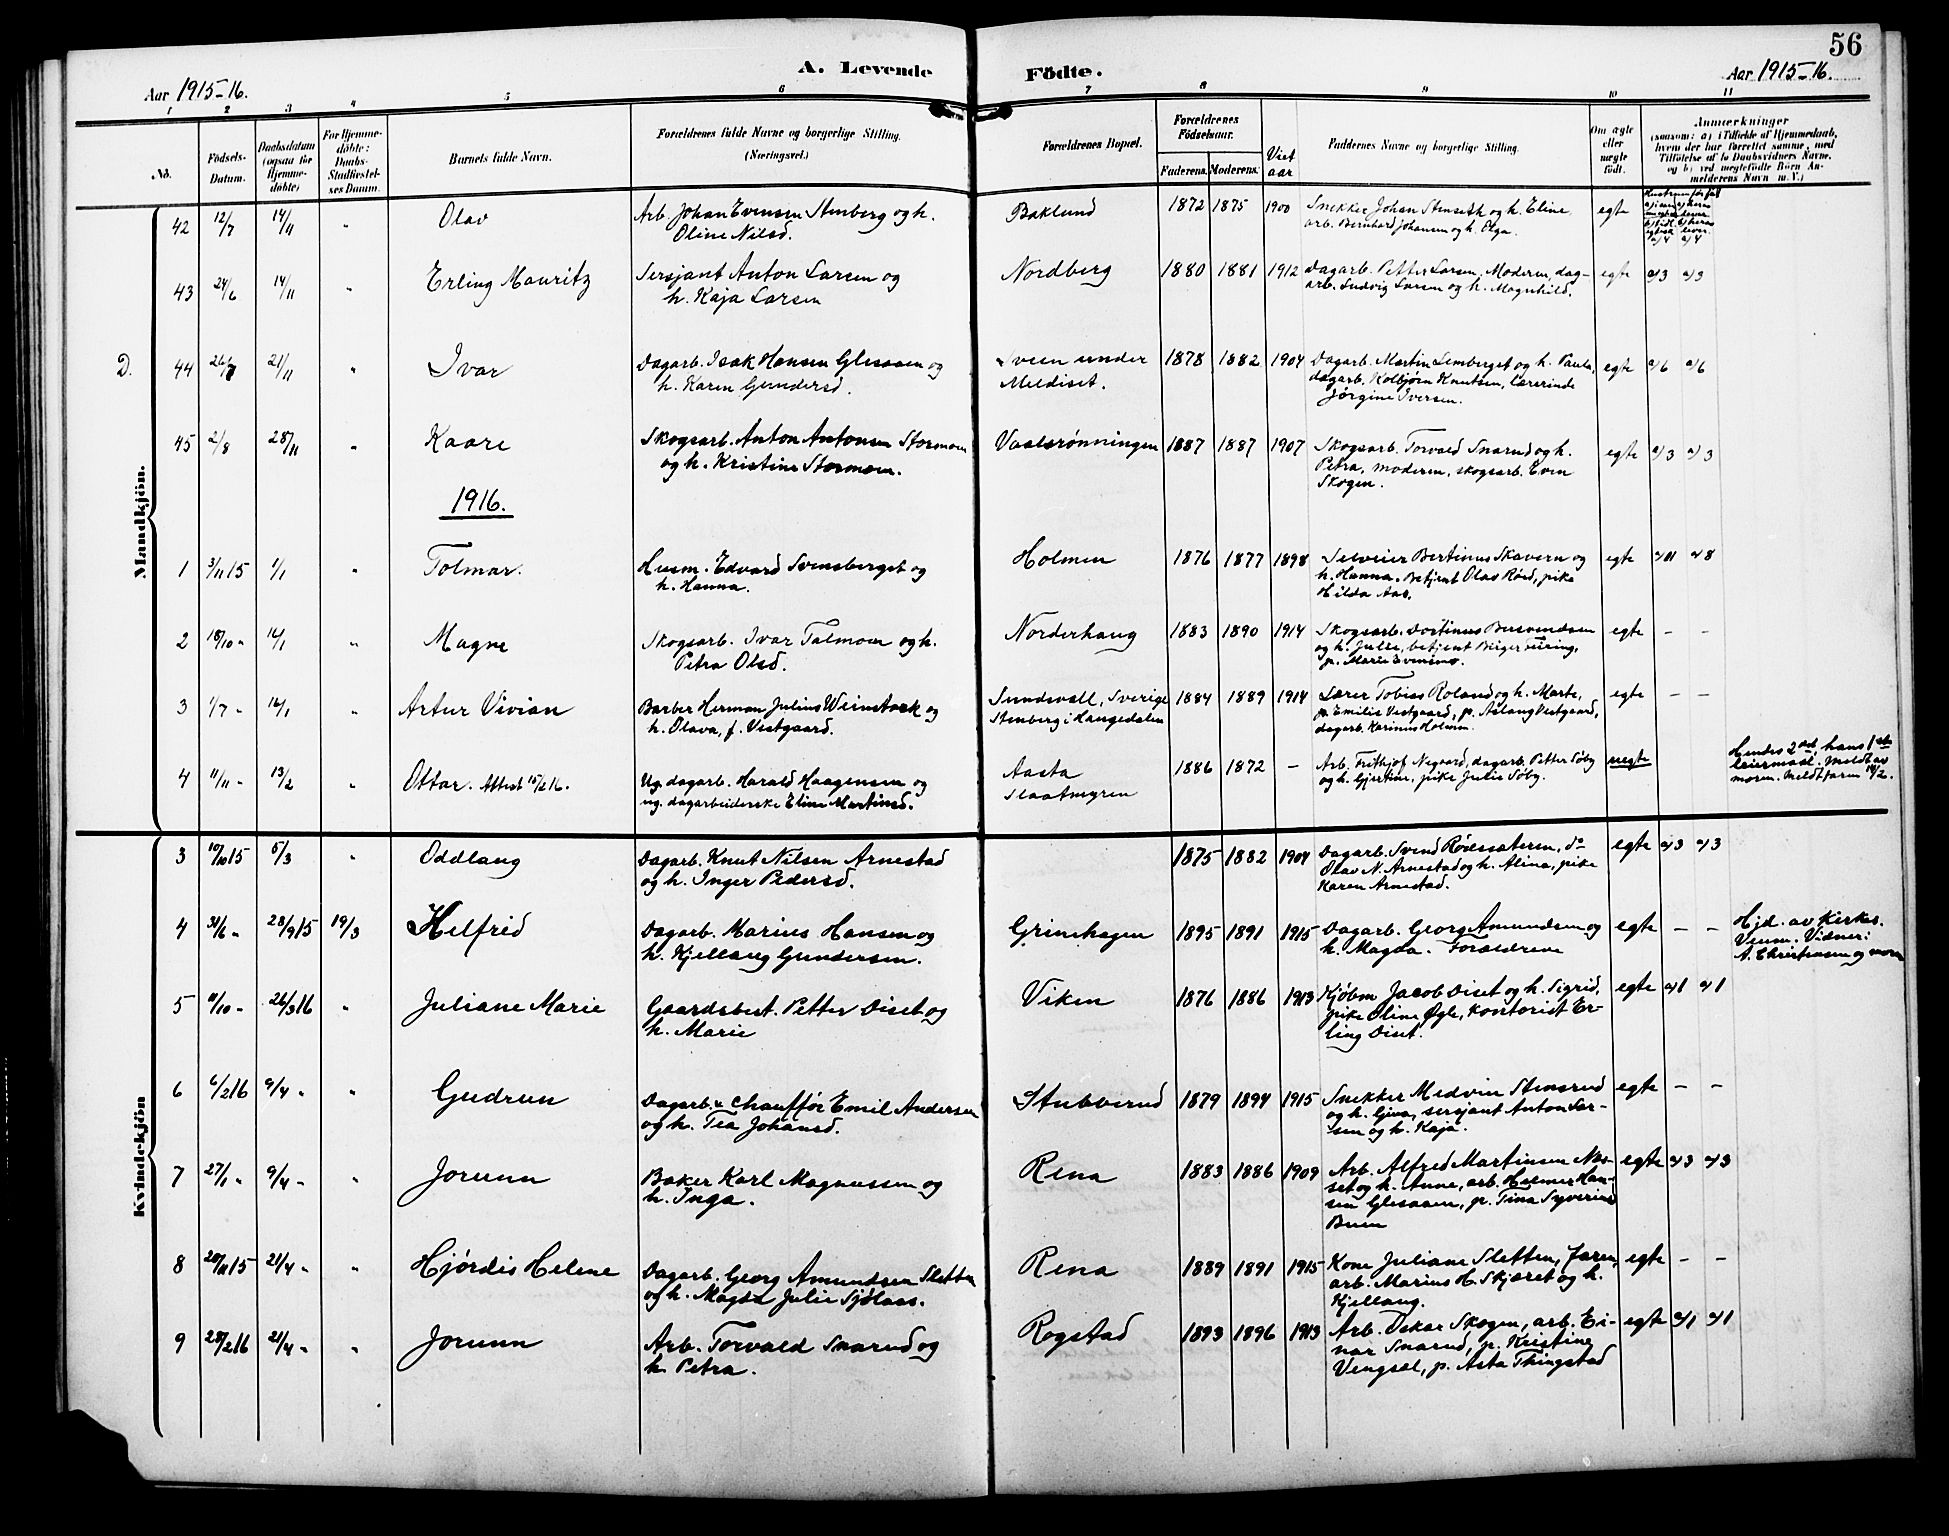 56
A. Levende Födte.
Aar 1915-16.
Aar 1915-16.
1 2 3 4 5 6 7 8 9 10 11
No.
Födsels-Datum.
Daabsdatum (ogsaa for Hjemme-döbte)
For Hjemme-döbte: Daabs-Stadfæstel-ses Datum.
Barnets fulde Navn.
Forældrenes fulde Navne og borgerlige Stilling.
(Næringsvei.)
Forældrenes Bopæl.
Forældrenes Födselsaar.
Faderens. Moderens.
Viet aar
Faddernes Navne og borgerlige Stilling.
Om ægte eller uægte födt.
Anmærkninger
(saasom: a) i Tilfælde af Hjemmedaab,
hvem der har forrettet samme, med
Tilföielse af to Daabsvidners Navne,
og b) ved uægtefödte Börn An-
melderens Navn m. V.)
Mandkjön.
42 12/7 14/11 " Olav
Arb. Johan Evensen Stenberg og h.
Oline Nilsd.
Baklund 1872 1875 1900
Snekker Johan Stenseth og h. Eline,
arb. Bernhard Johansen og h. Olga.
egte
43 24/6 14/11 " Erling Mauritz
Sersjant Anton Larsen og
h. Kaja Larsen
Nordberg 1880 1881 1912
Dagarb. Petter Larsen, Moderen, dag-
arb. Ludvig Larsen og h. Magnhild.
egte a/3 a/3
D. 44 26/7 21/11 " Ivar
Dagarb. Isak Hansen Glesaaen og
h. Karen Gundersd.
Sveen under
Meldiset.
1878 1882 1904
Dagarb. Martin Lemberget og h. Paula,
dagarb. Kolbjørn Knutsen, lærerinde
Jørgine Iversen.
egte a/6 a/6
45 2/8 28/11 " Kaare
Skogsarb. Anton Antonsen Stormoen
og h. Kristine Stormoen.
Vaalsrønningen 1887 1887 1907
Skogsarb. Torvald Snarud og h.
Petra, moderen, skogsarb. Even
Skogen.
egte a/3 a/3
1916.
1 3/11 15 1/1 " Tolmar.
Husm. Edvard Svensberget og
h. Hanna.
Holmen 1876 1877 1898
Selveier Bertinus Skavern og
h. Hanna. Betjent Olav Røed, pike
Hilda Aas.
egte a/11 a/8
2 18/10 " 16/1 " Magne
Skogsarb. Ivar Talmoen og h.
Petra Olsd.
Norderhaug 1883 1890 1914
Skogsarb. Dortinus Bersvendsen
og h. Julie, betjent Birger Feiring,
p. Marie Evensmo.
egte - -
3 1/7 " 16/1 " Artur Vivian
Barber Herman Julius Weinstock og
h. Olava, f. Vestgaard.
Sundsvall, Sverige
Stenberg i Haugedalen
1884 1889 1914
Lærer Tobias Roland og h. Marte,
p. Emilie Vestgaard, p. Aslaug Vestgaard,
dagarb. Karinus Holmen.
egte - -
4 11/11 " 13/2 " Ottar. Attest 15/2 16.
Ug. dagarb. Harald Haagensen og
ug. dagarbeiderske Eline Martinsd.
Aasta
Slaatmyren
1886 1872 -
Arb. Fritjof Negaard, dagarb. Petter Søby
og h. Gjertine, pike Julie Søby.
uegte
Hendes 2den, hans 1ste
leiermaal. Meldt av
moren. Meldt faren 14/2.
Kvindekjön
3 10/10 15 5/3 " Oddlaug
Dagarb. Knut Nilsen Arnestad
og h. Inger Pedersd.
1875 1882 1904
Dagarb. Svend Rødssæteren, do
Olav N. Arnestad og h. Alina, pike
Karen Arnestad.
egte a/3 a/3
4 31/6 " 28/9 15 19/3 Helfrid
Dagarb. Marius Hansen og
h. Kjellaug Gundersen.
Grinehagen 1895 1891 1915
Dagarb. Georg Amundsen og
h. Magda. Foræ̈ldrene
egte - -
Hjd. av kirkes.
Veum. Vidner:
A. Christiansen og moren
5 11/10 " 26/3 16 " Juliane Marie
Gaardsbest. Petter Diset og
h. Marie
Viken 1876 1886 1913
Kjøbm. Jacob Diset og h. Sigrid,
pike Oline Øgle, kontorist Er-
ling Diset.
egte a/1 a/1
6 6/2 16 9/4 " " Gudrun
Dagarb. & chauffør Emil Andersen
og h. Tea Johansd.
Stubberud 1879 1894 1915
Snekker Medvin Stensrud
og h. Gina, sersjant Anton Lar-
sen og h. Kaja.
egte - -
7 27/1 " 9/4 " " Jorunn
Baker Karl Magnussen og
h. Inga.
Rena 1883 1886 1909
Arb. Alfred Martinsen Næs-
set og h. Anne, arb. Helmer Han-
sen Glesaaen, p. Tina Syverine
Buen
egte a/3 a/3
8 20/11 15 21/4 " " Hjørdis Helene
Dagarb. Georg Amundsen Sletten
og h. Magda Julie Sjølaas.
Rena 1889 1891 1915
Kone Juliane Sletten, faren,
arb. Marius H. Skjæret og h.
Kjellaug.
egte - -
9 28/2 16 21/4 " " Jorunn
Arb. Torvald Snarud og
h. Petra.
Rogstad 1893 1896 1913
Arb. Oskar Skogen, arb. Ei-
nar Snarud, p. Kristine
Vengsæl, p. Asta Thingstad
egte a/1 a/1